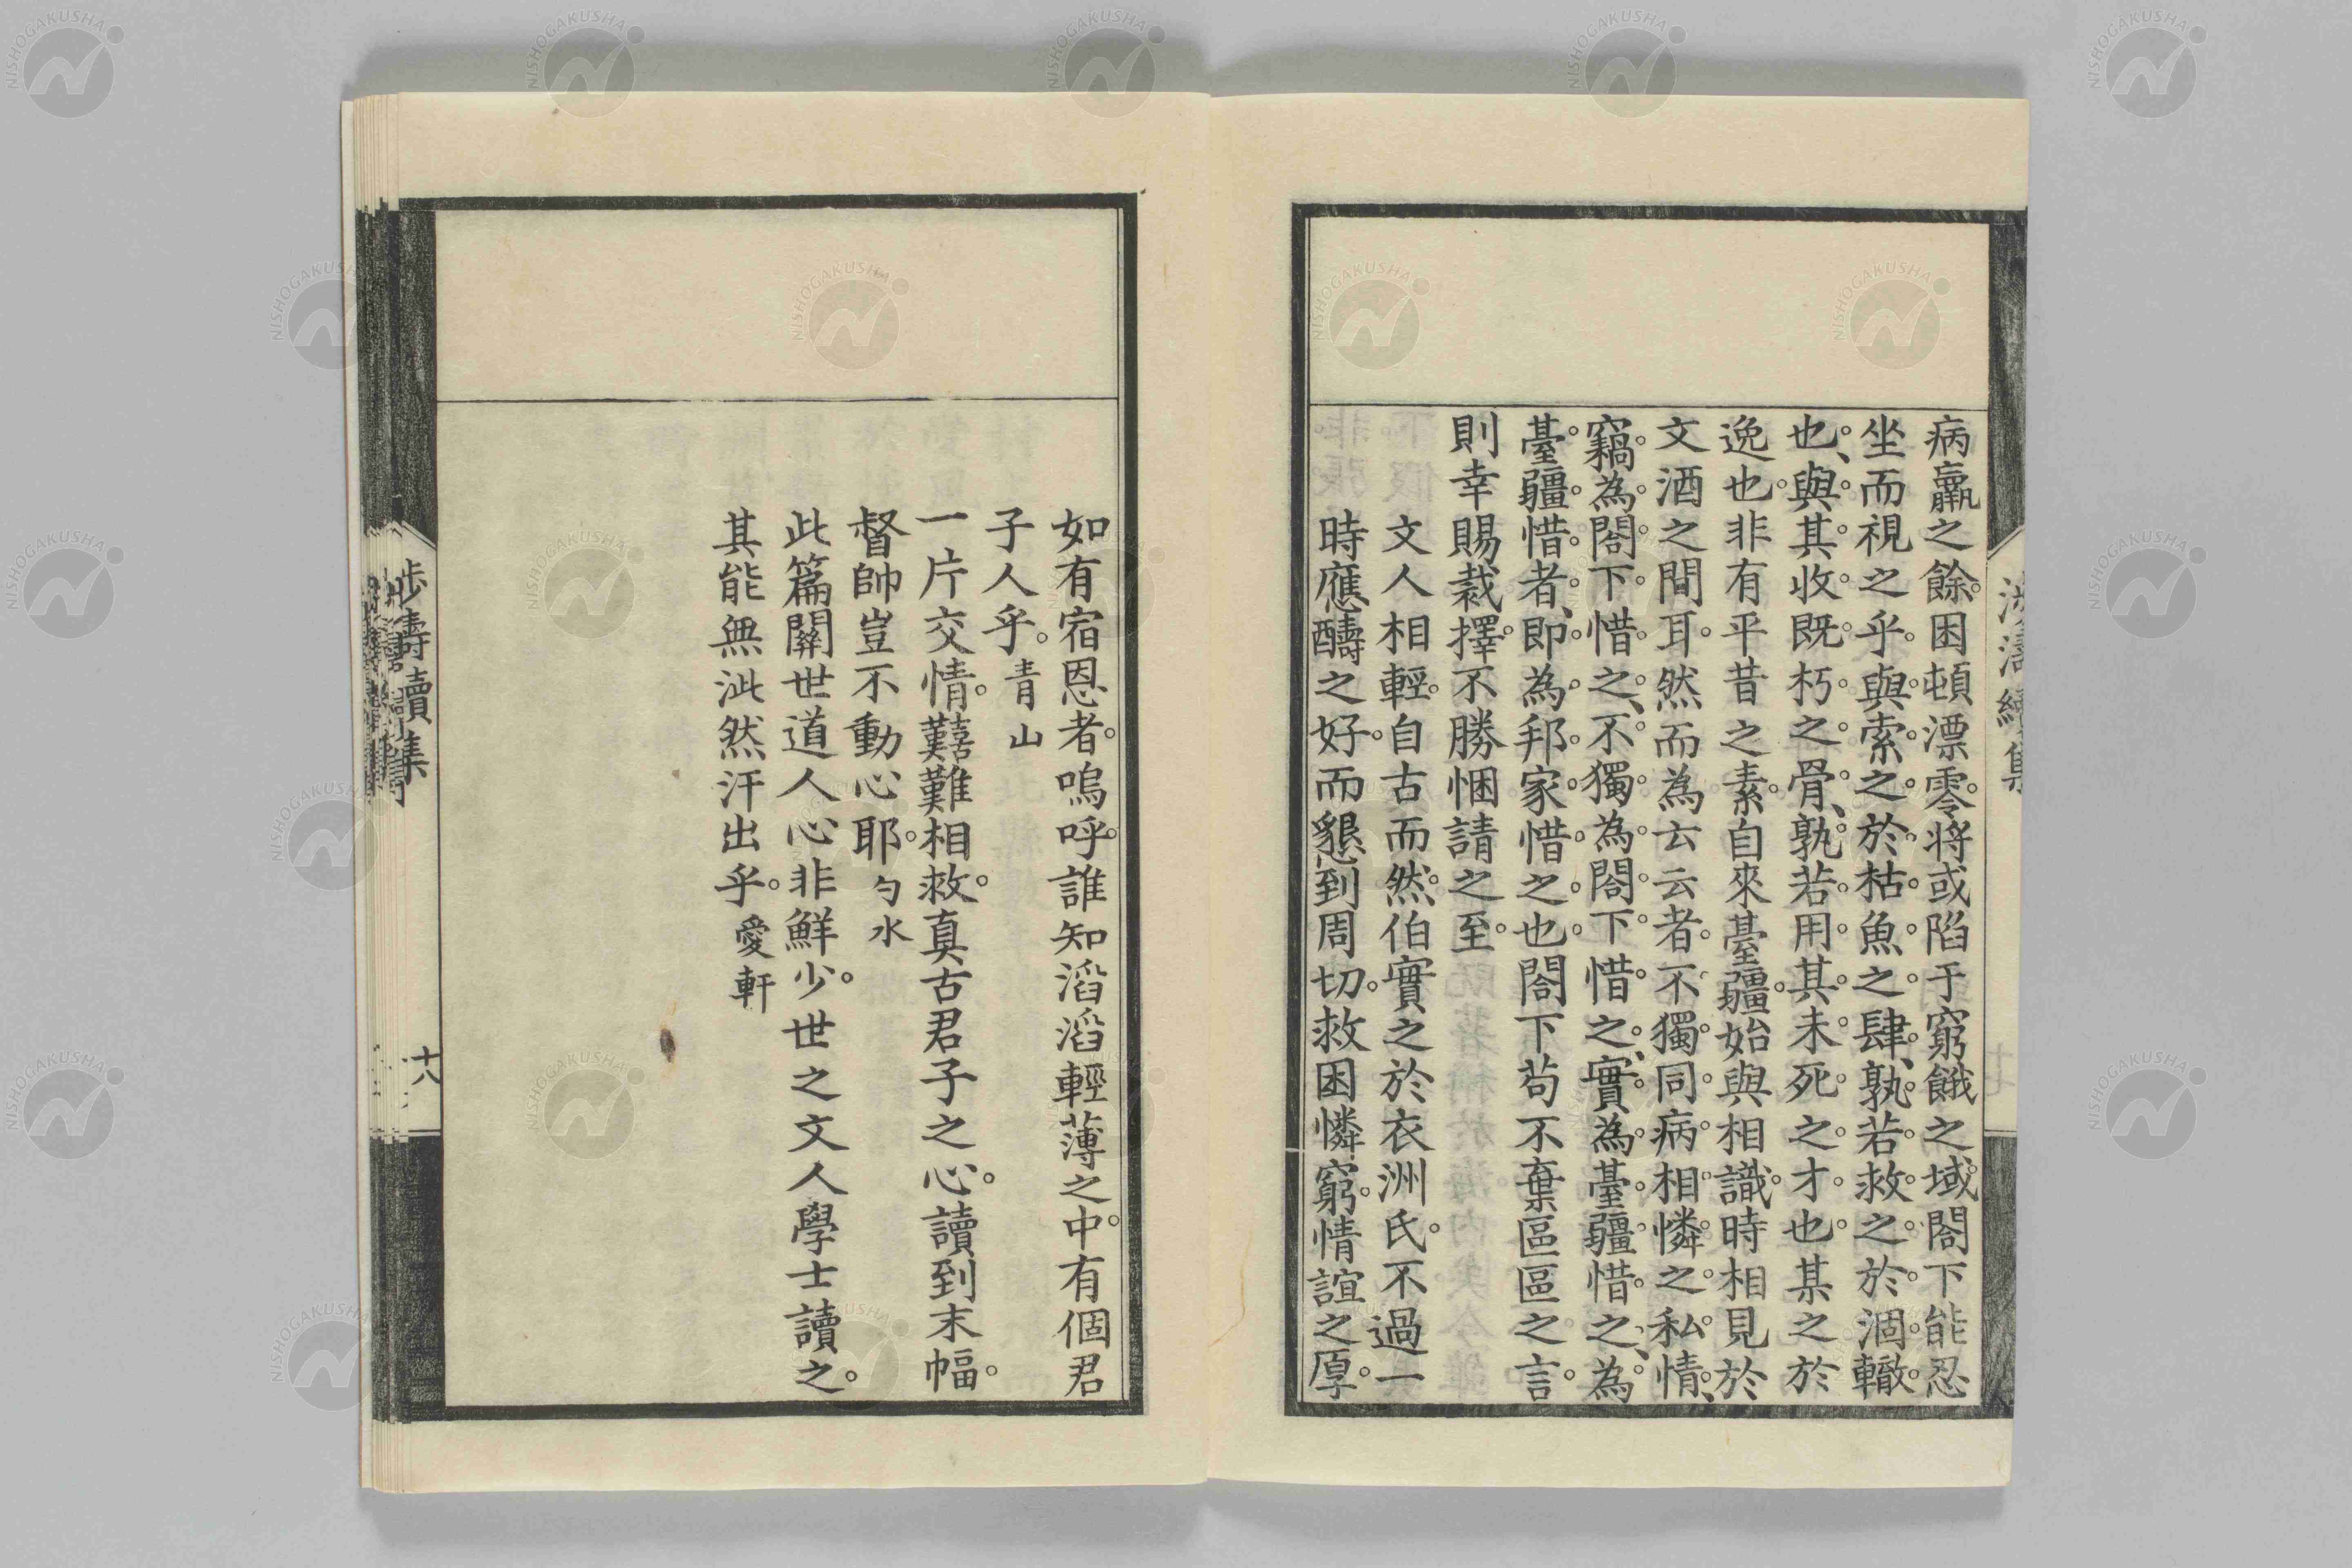 病羸之餘。困頓漂零。將或陷于窮餓之域。閤下能忍
坐而視之乎。與索之於枯魚之肆、孰若救之於涸轍
也、與其收既朽之骨、孰若用其未死之才也。某之於
逸也。非有平昔之素。自來臺疆。始與相識。時相見於
文酒之間耳。然而為云云者。不獨同病相憐之私情、
竊為閤下惜之、不獨為閤下惜之、實為臺疆惜之、為
臺疆惜者、即為邦家惜之也。閤下苟不棄區區之言。
則幸賜裁擇。不勝悃請之至。
文人相輕。自古而然。伯實之於衣洲氏。不過一
時應酬之好。而懇到周切。救困憐窮。情誼之厚。
如有宿恩者。嗚呼。誰知滔滔輕薄之中。有個君
子人乎。青山
一片交情。囏難相救。真古君子之心。讀到末幅。
督帥豈不動心耶。勺水
此篇關世道人心非鮮少。世之文人學士讀之。
其能無泚然汗出乎。愛軒
濤續集
十八
NISHOGAKUSHA